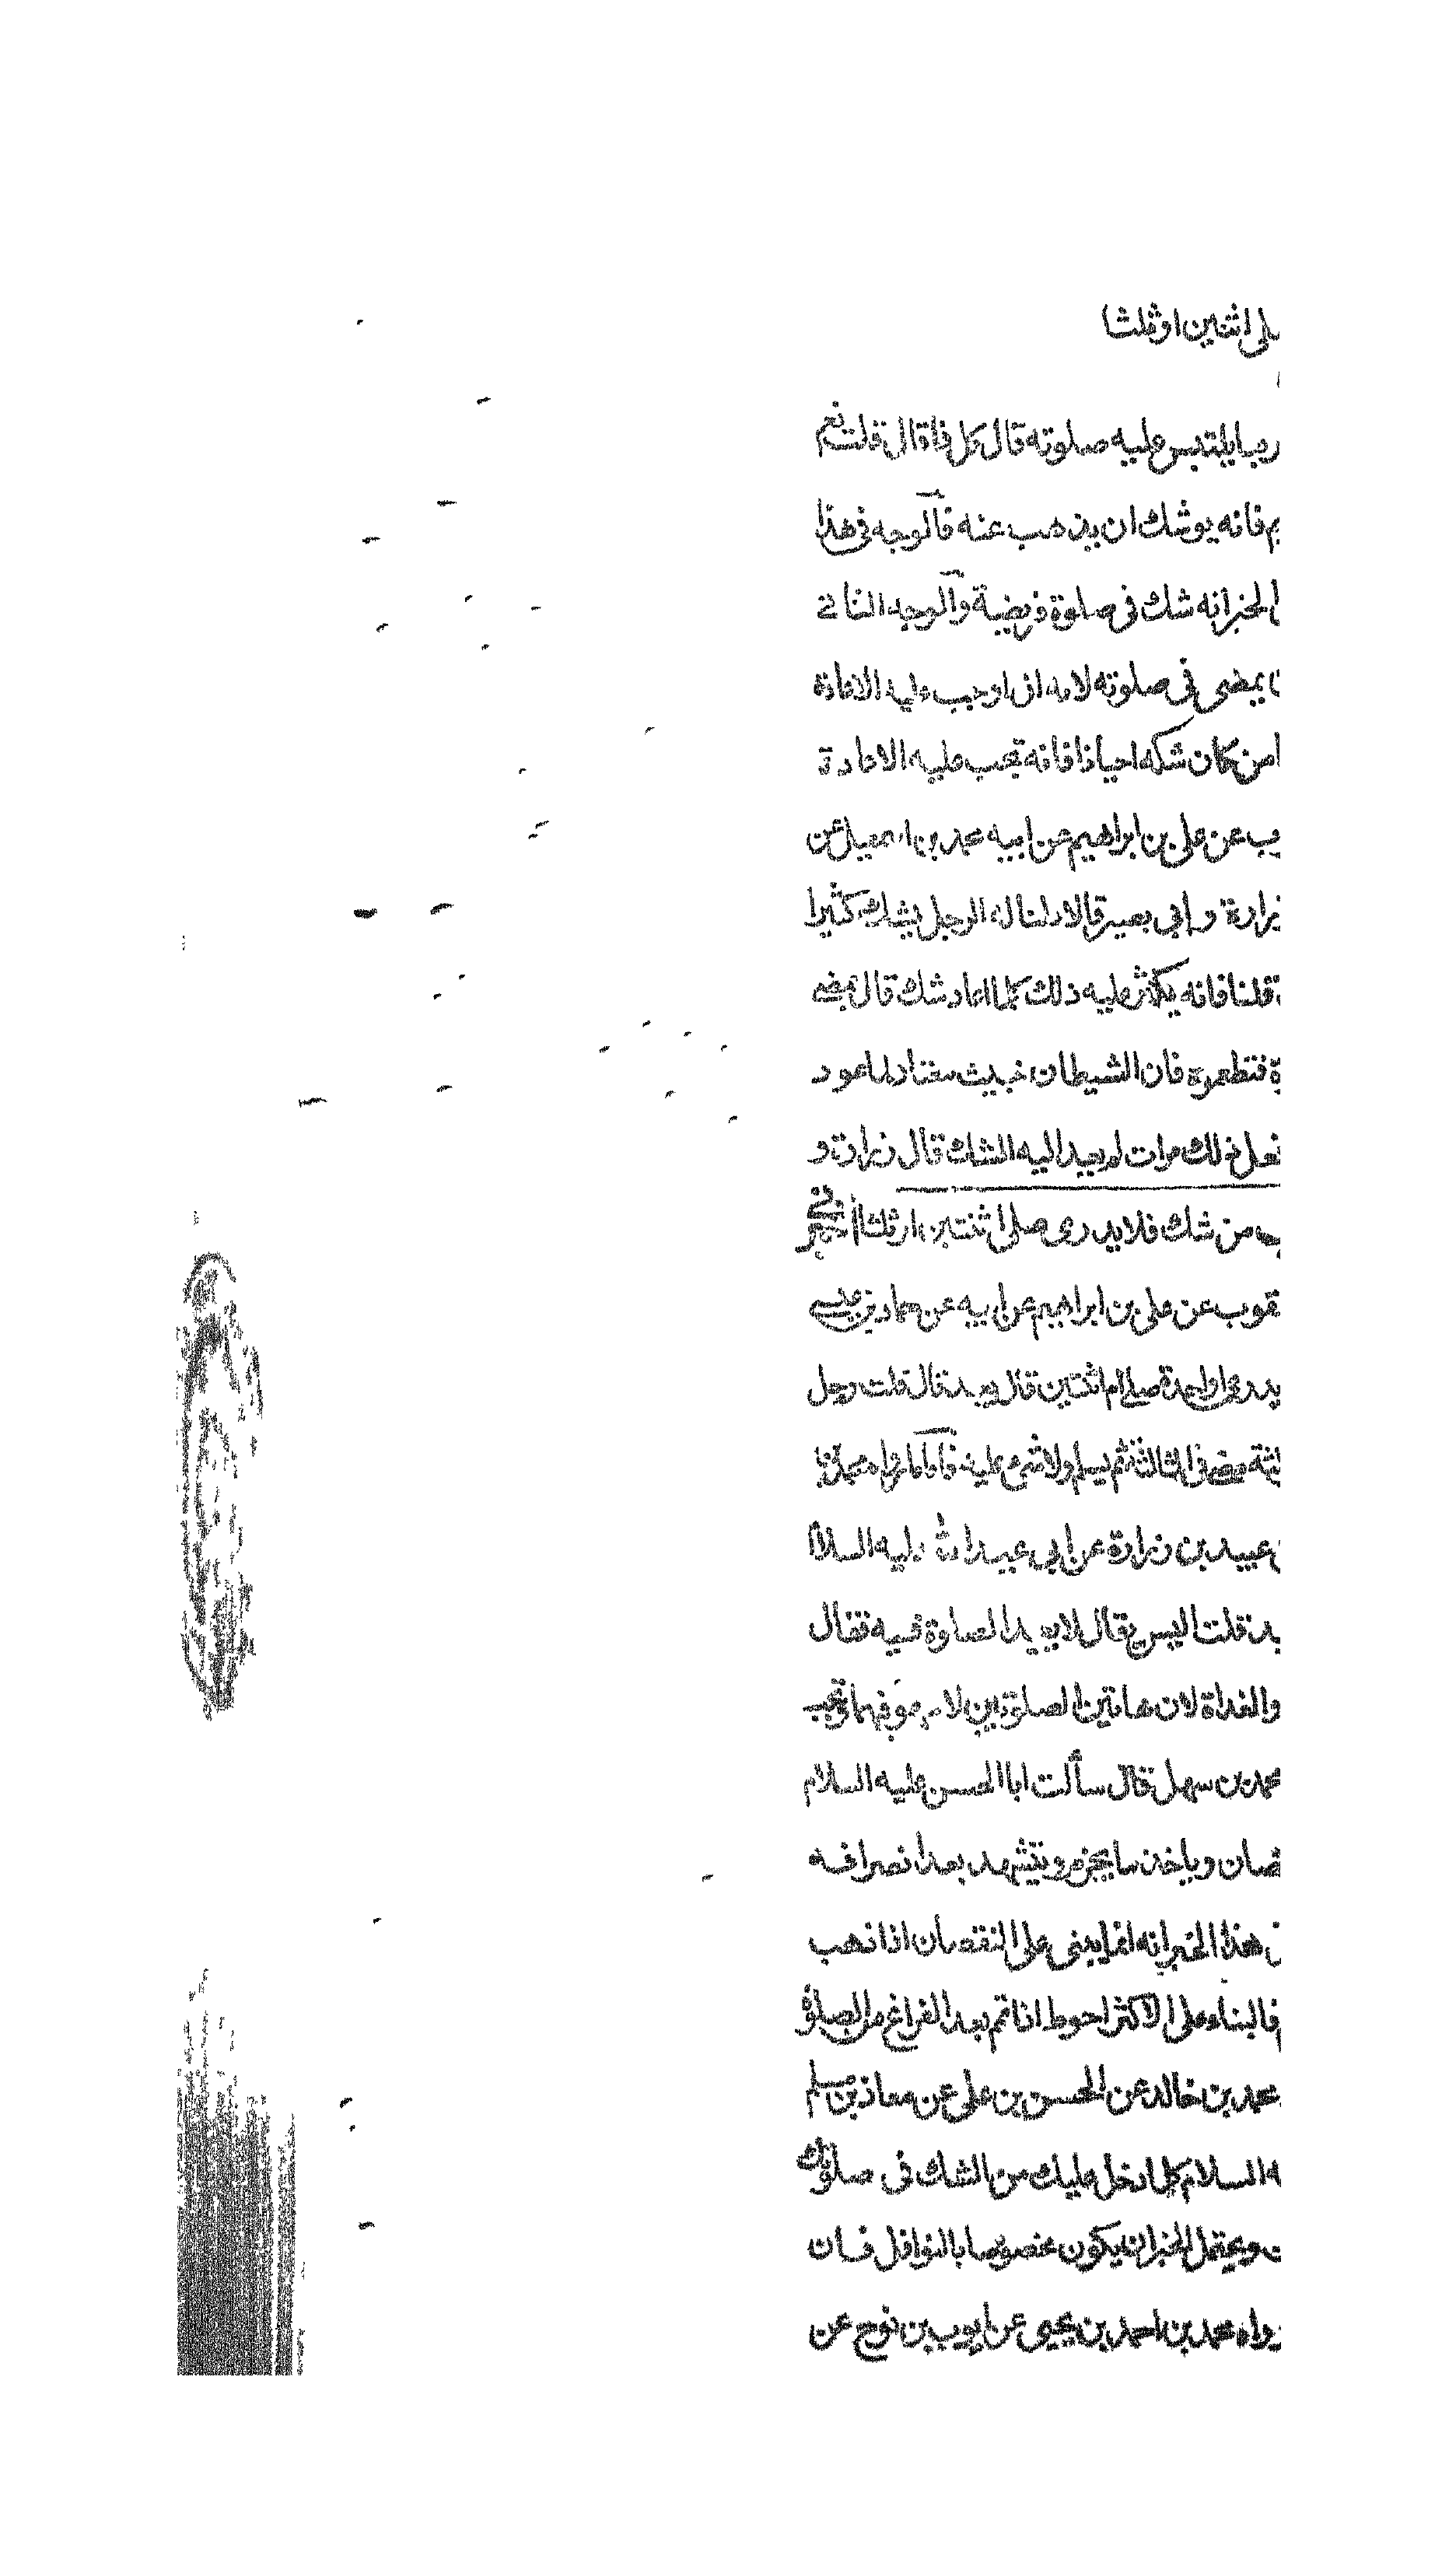 صلى اثنين او ثلثا
ربما يلتبس عليه صلوته قال كل ذا قال قلت نعم
فانه يوشك ان يذهب عنه فالوجه فى هذا
الخبر انه شك فى صلوة فريضة والوجه الثانى
يمضى فى صلوته لانه ان اوجب عليه الاعادة
من كان شكه احيانا فانه تجب عليه الاعادة
عن على بن ابراهيم عن ابيه محمد بن اسمعيل عن
زرارة و ابى بصير قالا قلنا له الرجل يشك كثيرا
قلنا فانه يكثر عليه ذلك كلما اعاد شك قال يمضى
فتطعموه فان الشيطان خبيث معتاد لما عود
فعل ذلك مرات لم يعد اليه الشك قال زرارة و
من شك فلا يدرى صلى اثنتين او ثلثا اخبرنى
يعقوب عن على بن ابراهيم عن ابيه عن حماد بن عيسى
يدرى واحدة صلى ام اثنتين قال يعيد قال قلت رجل
الثالثة مضى فى الثالثة ثم يسلم ولا شىء عليه فاما ما رواه محمد بن
عبيد بن زرارة عن ابى عبد الله عليه السلام
قلت اليس يقال لا يعيد الصلوة فقيه فقال
والغداة لان هاتين الصلوتين لا سهو فيهما تجب
محمد بن سهل قال سألت ابا الحسن عليه السلام
النقصان وياخذ بالجزم ويتشهد بعد انصرافه
هذا الخبر انه انما يبنى على النقصان اذا ذهب
فالبناء على الاكثر احوط اذا تم بعد الفراغ من الصلوة
محمد بن خالد عن الحسن بن على عن معاذ بن مسلم
السلام كلما دخل عليك من الشك فى صلوتك
ويحتمل الخبر ان يكون مخصوصا بالنوافل فان
رواه محمد بن احمد بن يحيى عن ايوب بن نوح عن